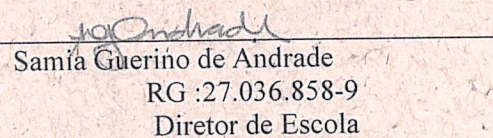 Samia Guerino de Andrade
RG :27.036.858-9
Diretor de Escola